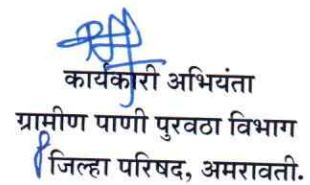 कार्यकारी अभियंता
ग्रामीण पाणी पुरवठा विभाग
जिल्हा परिषद, अमरावती.